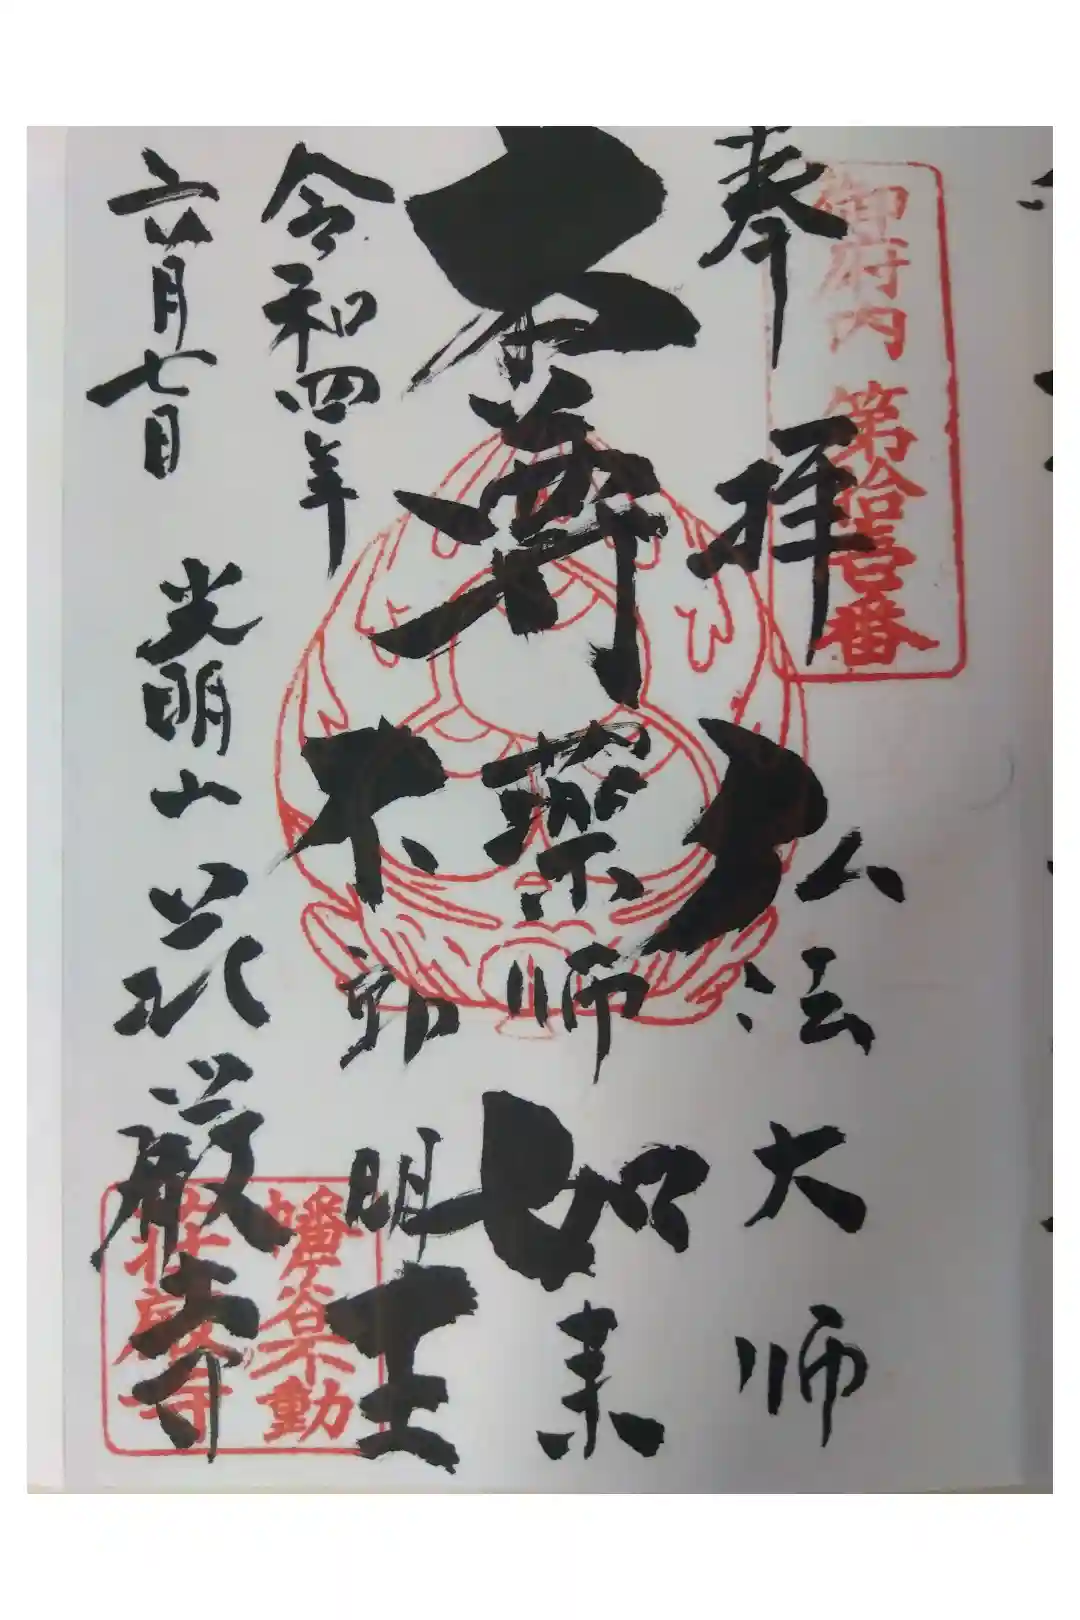 奉拝
御府内 第拾壱番
弘法大師
本尊
薬師如来
不動明王
令和四年
六月七日
光明山 荘厳寺
幡ヶ谷不動
荘厳寺